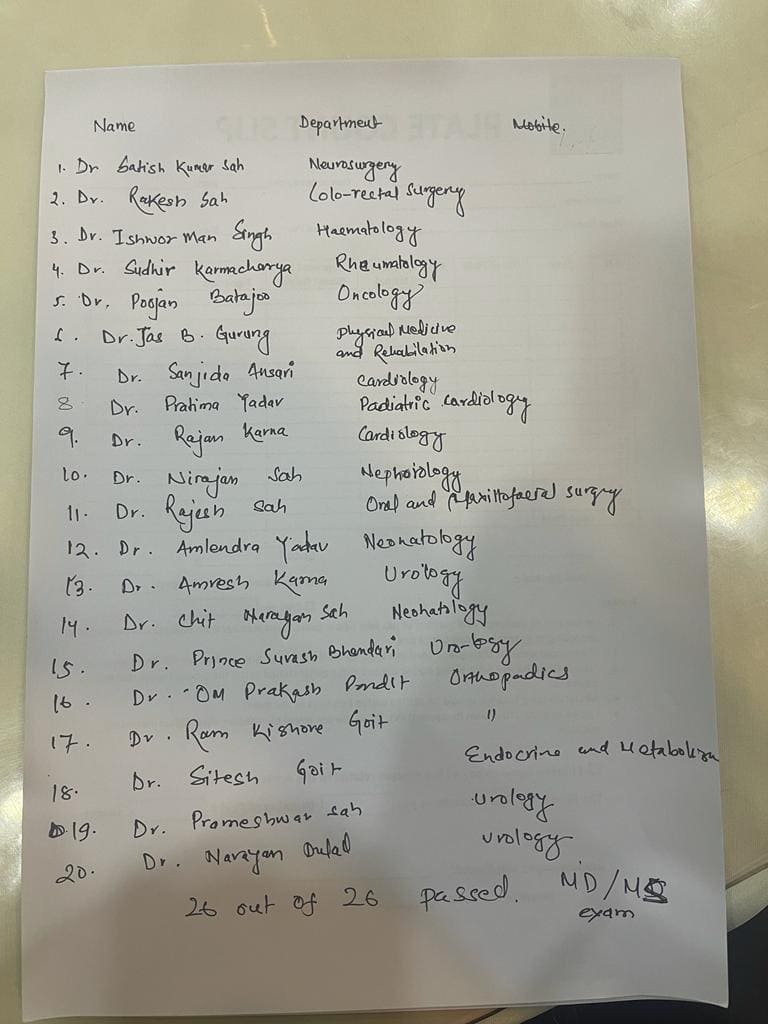 Name Department Mobile.
1. Dr Satish Kumar Sah Neurosurgery
2. Dr. Rakesh Sah Colo-rectal Surgery
3. Dr. Ishwor Man Singh Haematology
4. Dr. Sudhir Karmacharya Rheumatology
5. Dr. Poojan Batajoo Oncology
6. Dr. Jas B. Gurung Physical Medicine
and Rehabilation
7. Dr. Sanjida Ansari Cardiology
8 Dr. Pratima Yadav Padiatric cardiology
9. Dr. Rajan Karna Cardiology
10. Dr. Nirajan Sah Nephorology
11. Dr. Rajesh Sah Oral and Maxillofacial surgry
12. Dr. Amlendra Yadav Neonatology
13. Dr. Amresh Karna Urology
14. Dr. Chit Narayan Sah Neonatology
15. Dr. Prince Surash Bhandari Uro-logy
16. Dr. OM Prakash Pandit Orthopadics
17. Dr. Ram Kishore Goit "
18. Dr. Sitesh Goit Endocrine and Metabolism
19. Dr. Prameshwar Sah urology
20. Dr. Narayan urology
26 out of 26 passed. MD/MS
exam